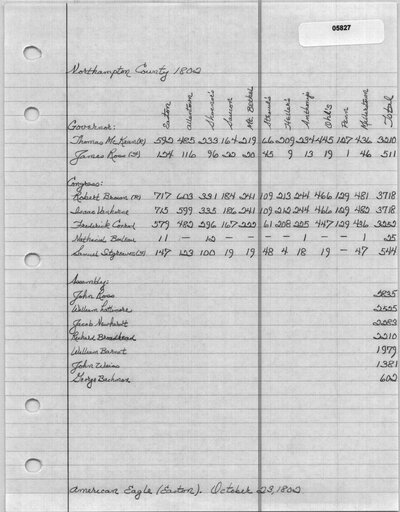 05827
Northampton County 1802
Easton Allentown Shannon's Saucon Mt. Bethel Straub's Heller's Anthony's Ohl's Penn Millerstown Total
Governor:
Thomas McKean (R) 592 485 233 164 219 66 209 234 445 127 436 3210
James Ross (F) 124 116 96 20 20 45 9 13 19 1 46 511
Congress:
Robert Brown (R) 717 603 331 184 241 109 213 244 466 129 481 3718
Isaac Vanhorne 715 599 335 186 241 109 212 244 466 129 482 3718
Frederick Conrad 579 482 296 167 222 61 208 225 447 129 436 3252
Nathaniel Boileau 11 – 12 – – – – 1 – – 1 25
Samuel Sitgreaves (F) 147 123 100 19 19 48 4 18 19 – 47 544
Assembly:
John Ross 2835
William Lattimore 2555
Jacob Newhardt 2283
Richard Broadhead 2210
William Barnet 1979
John Weiss 1381
George Bachman 602
American Eagle (Easton). October 23, 1802